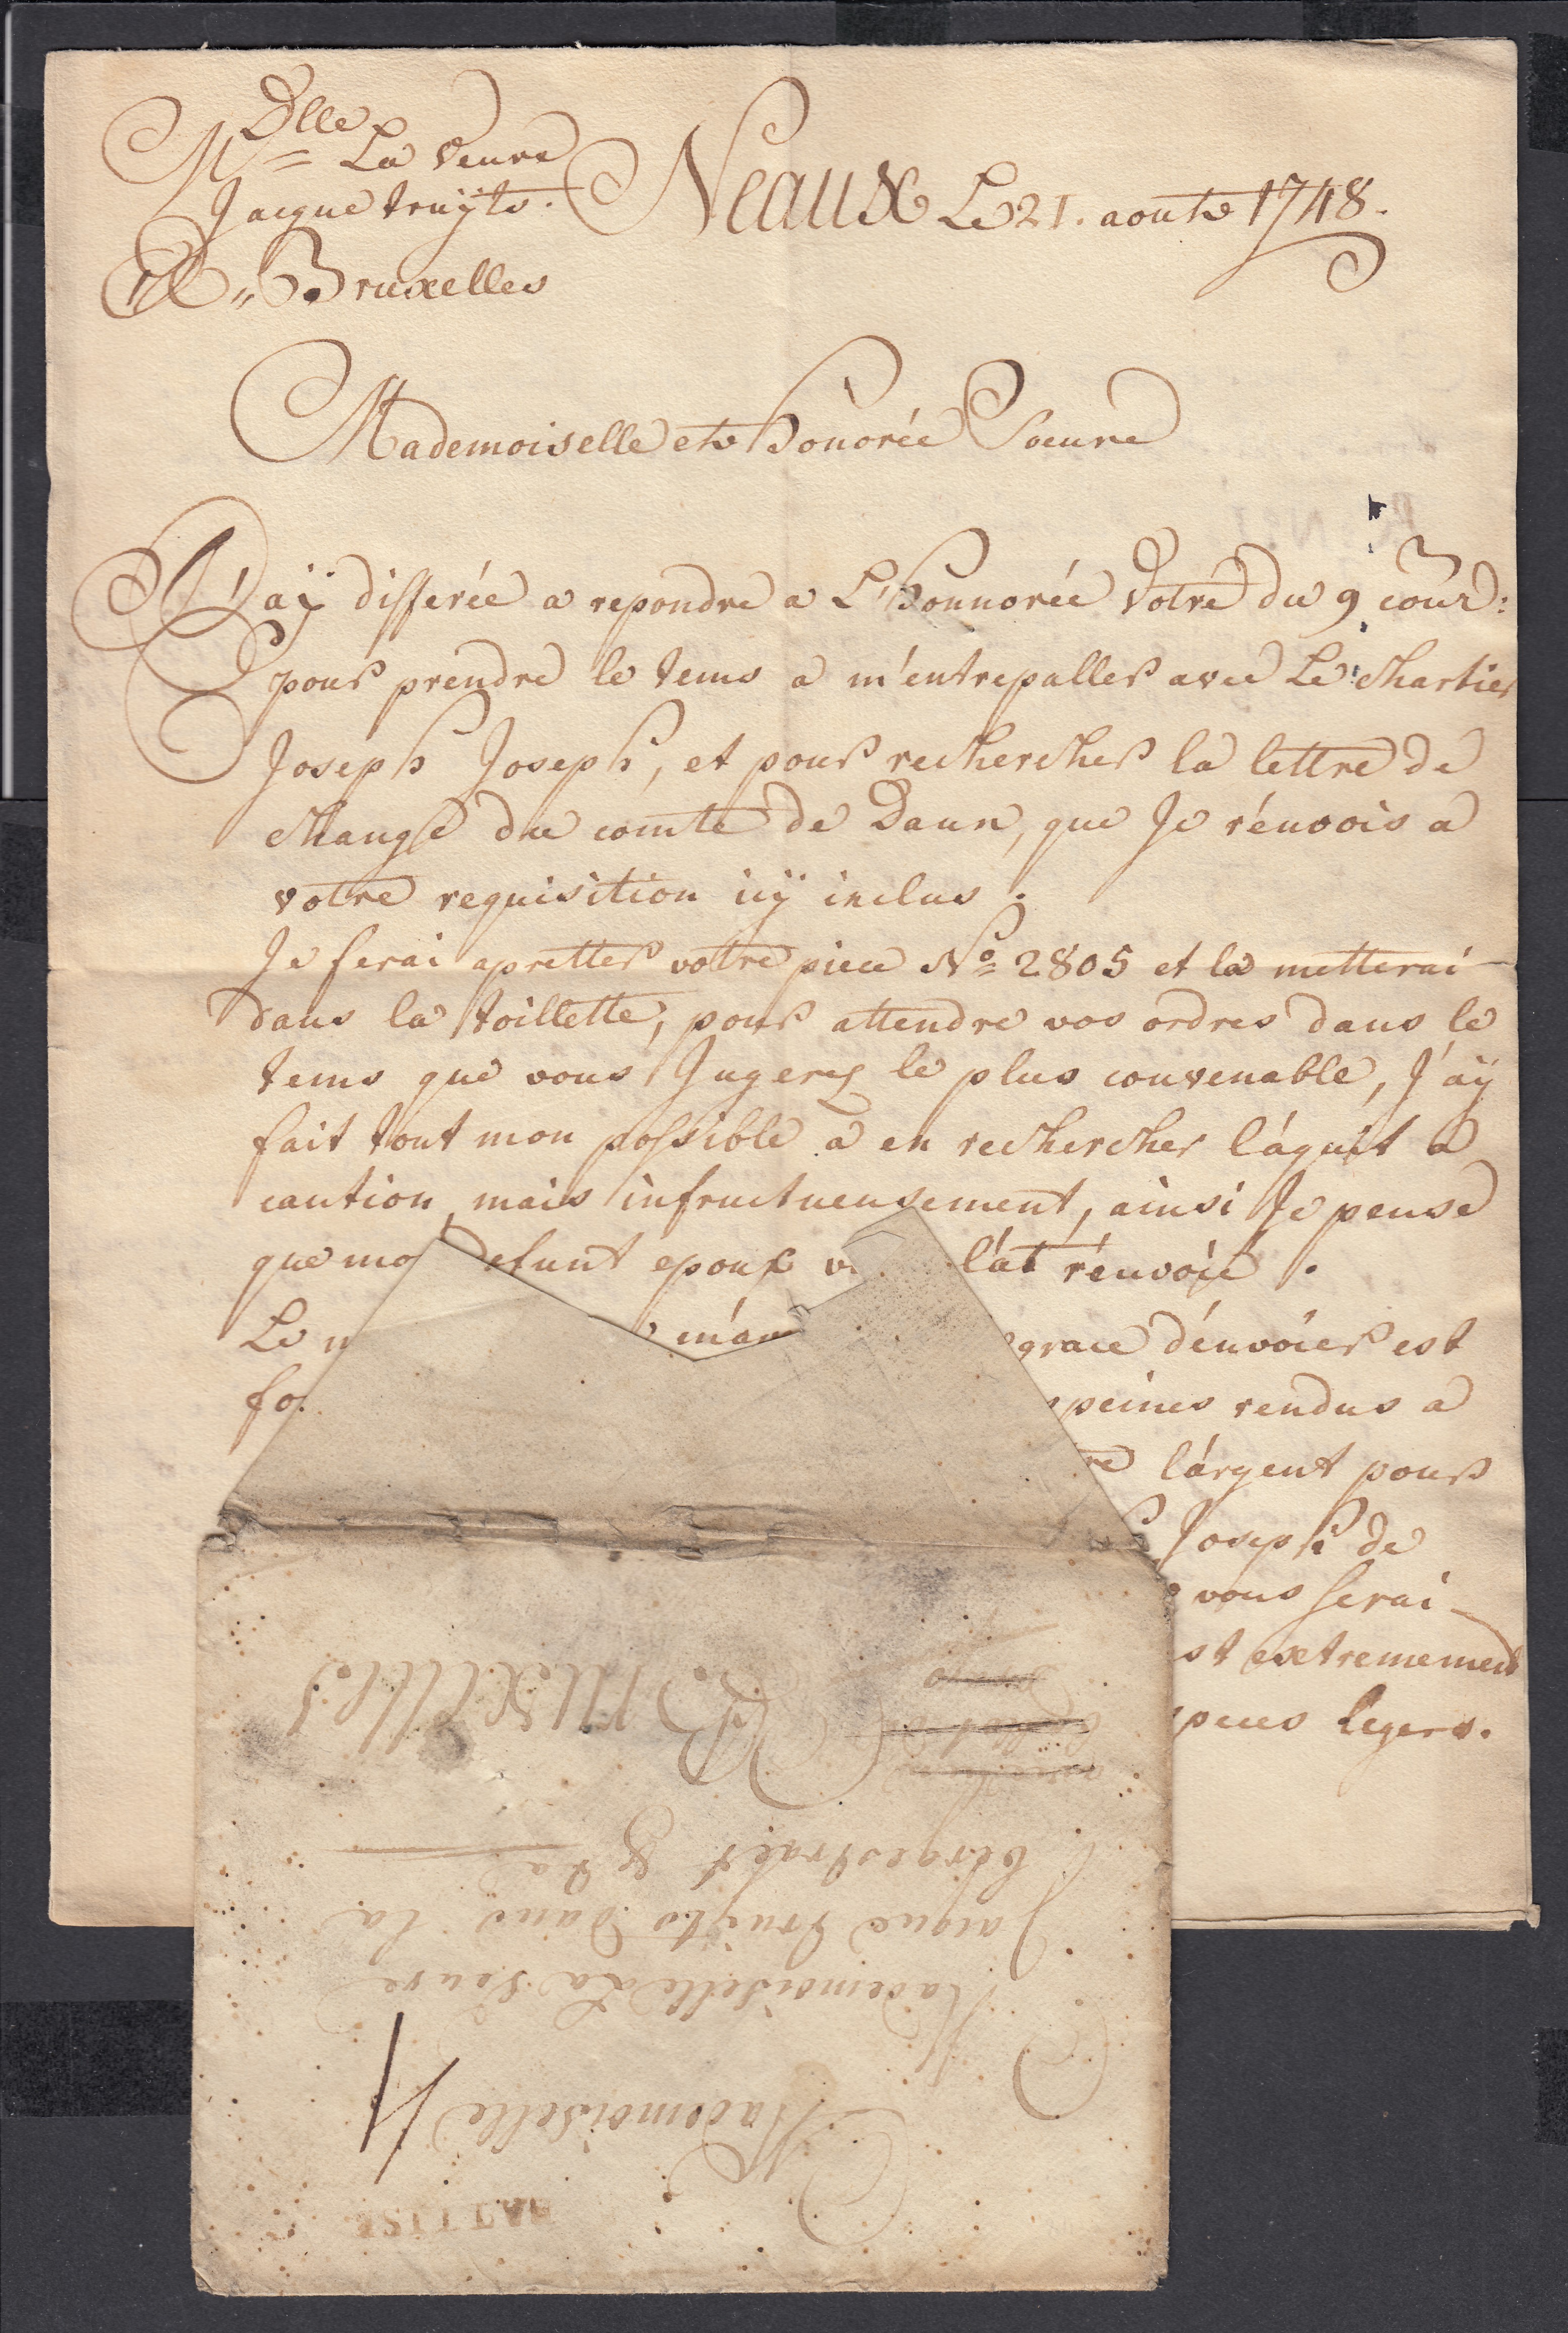 Dlle
M = La veuve
Jacque truÿts.
A,, Bruxelles
Neaux Le 21. aout 1748.
Mademoiselle et honorée Soeure
J'aÿ differée a repondre a L'honnorée votre du 9 cour:
pour prendre le tems a m'entrepaller avec Le Chartier
Joseph Joseph, et pour rechercher la lettre de
change du comte de Daun, que Je rénvois a
votre requisition icÿ inclus.
Je ferai apretter votre piece No= 2805 et la metterai
dans la toillette, pour attendre vos ordres dans le
tems que vous Jugerez le plus convenable, J'aÿ
fait tout mon possible a en rechercher l'áquit a
caution, mais infructueusement, ainsi Je pense
que mo defunt epoux l'at rénvoié.
Le grace d'énvoier est
fo peines rendus a
l'árgent pour
Joseph de
vous ferai
st extrememen
legers.
Mademoiselle
4
Mademoiselle La veuve
Jacque truÿts dans la
bergestraet &ta
Bruxelles